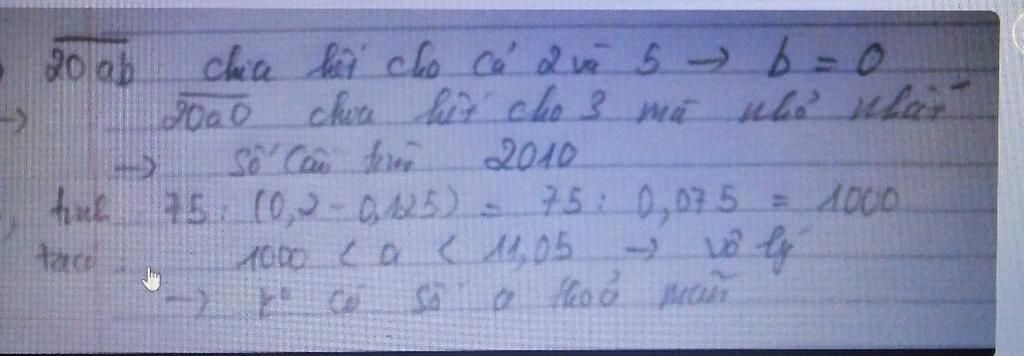 20ab chia hết cho cả 2 và 5 → b = 0
→ 20a0 chia hết cho 3 mà nhỏ nhất
→ số cần tìm 2010
75 : (0,2 - 0,125) = 75 : 0,075 = 1000
1000 < a < 11,05 → vô lý
→ k° có số a thoả mãn